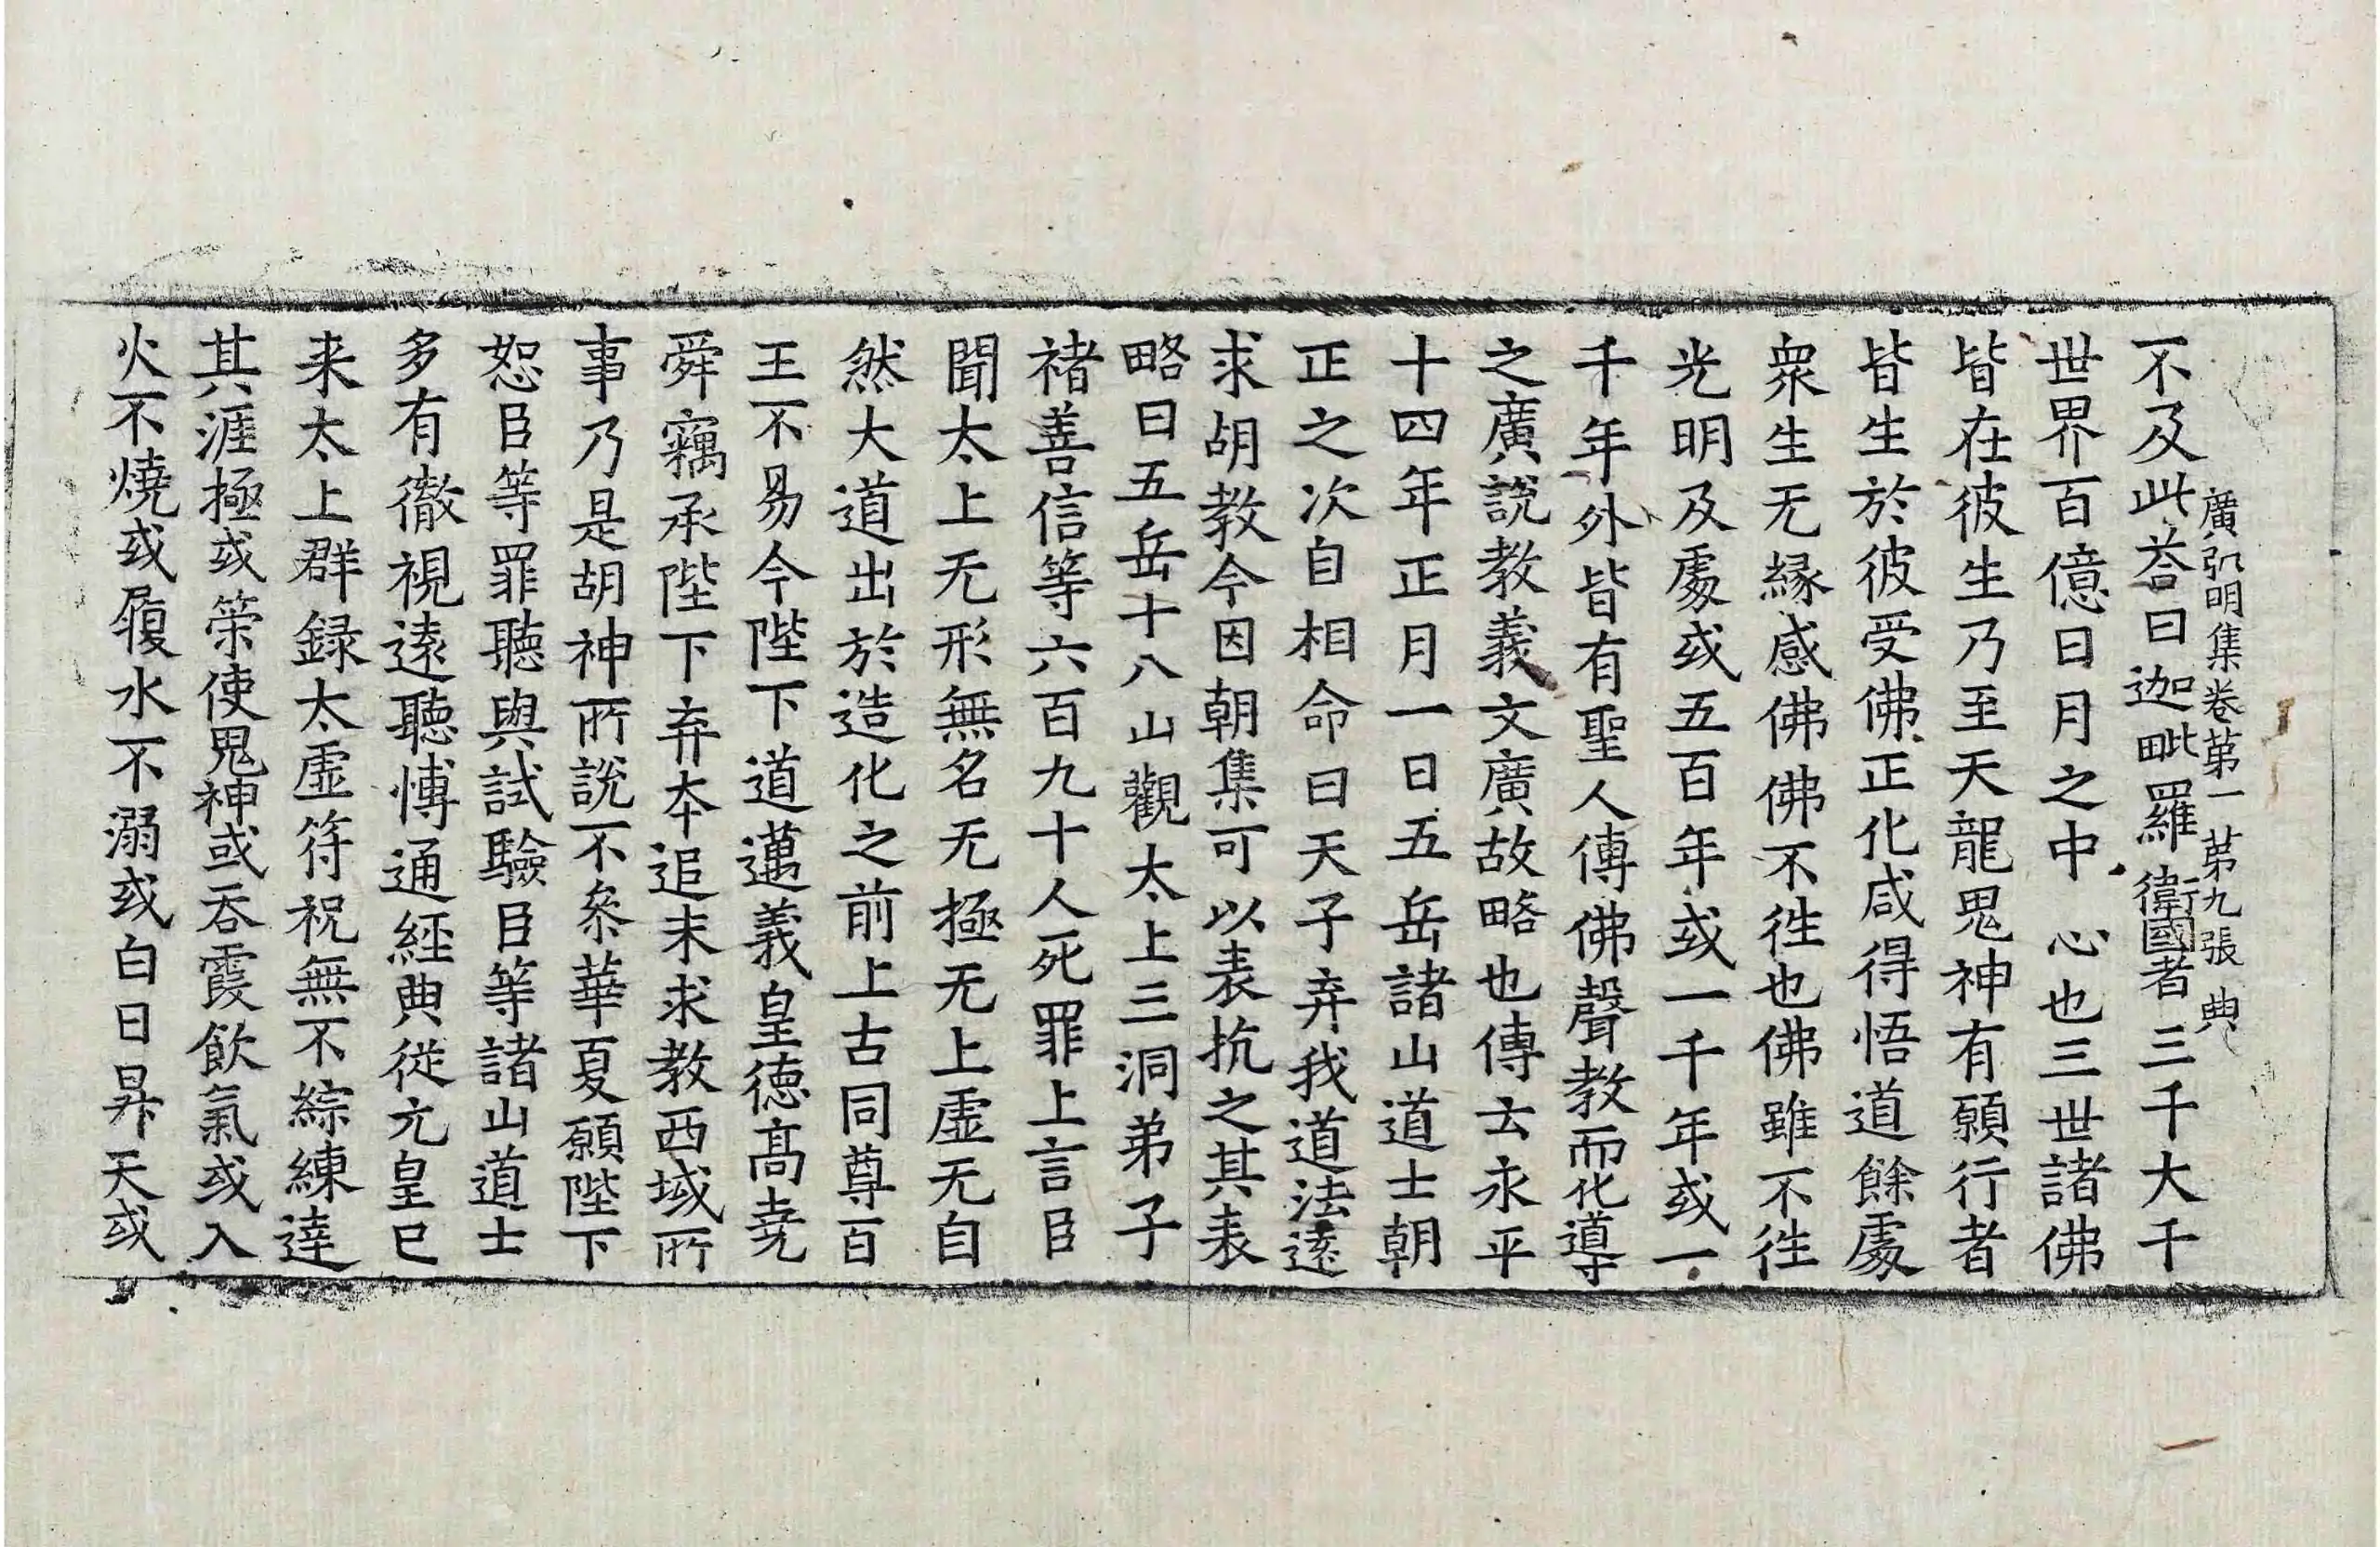 廣弘明集卷苐一 苐九張 典
不及此荅曰迦毗羅衛國者三千大千
世界百億日月之中心也三世諸佛
皆在彼生乃至天龍鬼神有願行者
皆生於彼受佛正化咸得悟道餘處
衆生无緣感佛佛不徃也佛雖不徃
光明及處或五百年或一千年或一
千年外皆有聖人傳佛聲教而化導
之廣說教義文廣故略也傳云永平
十四年正月一日五岳諸山道士朝
正之次自相命曰天子弃我道法遠
求胡教今因朝集可以表抗之其表
略曰五岳十八山觀太上三洞弟子
禇善信等六百九十人死罪上言臣
聞太上无形無名无極无上虛无自
然大道出於造化之前上古同尊百
王不易今陛下道邁義皇德髙堯
舜竊承陛下弃夲追末求教西域所
事乃是胡神所說不叅華夏願陛下
恕臣等罪聽與試驗臣等諸山道士
多有徹視遠聽愽通經典從元皇已
来太上群録太虛符祝無不綜練達
其涯極或䇿使鬼神或吞霞飮氣或入
火不燒或履水不溺或白日昇天或